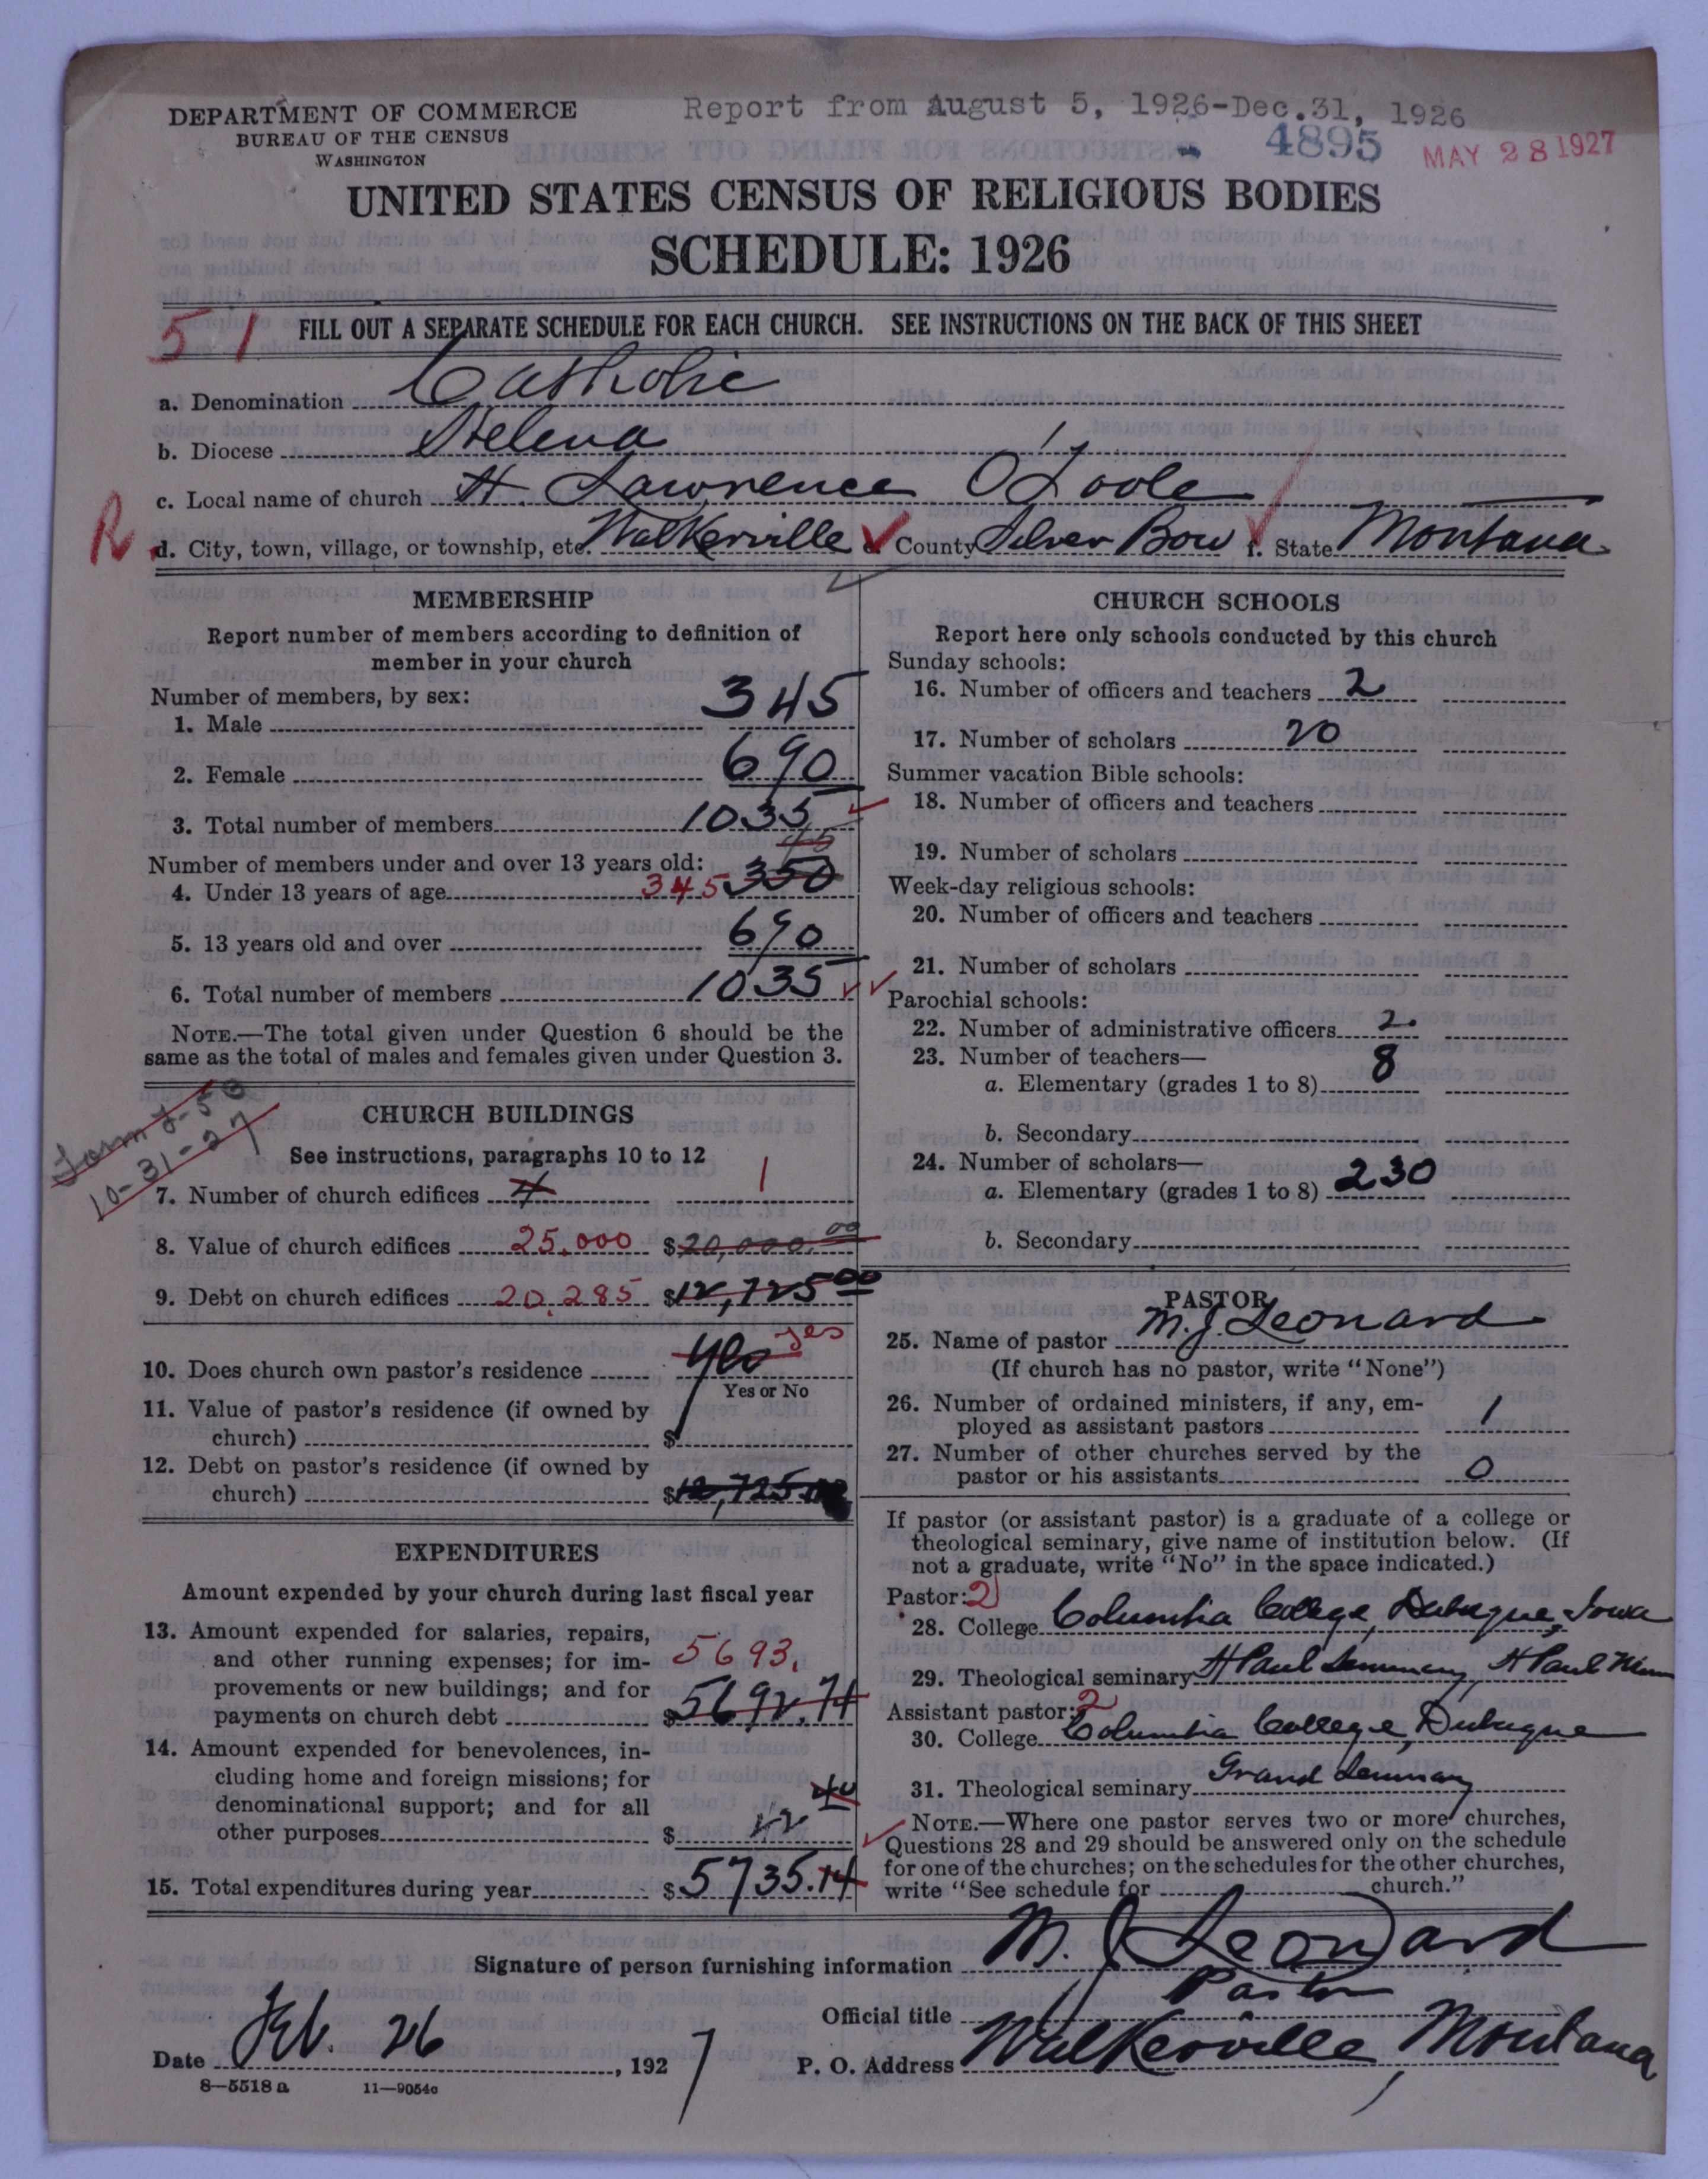 DEPARTMENT OF COMMERCE
BUREAU OF THE CENSUS
WASHINGTON
Report from August 5, 1926-Dec.31, 1926
4895
MAY 28 1927
UNITED STATES CENSUS OF RELIGIOUS BODIES
SCHEDULE: 1926
51
FILL OUT A SEPARATE SCHEDULE FOR EACH CHURCH. SEE INSTRUCTIONS ON THE BACK OF THIS SHEET
a. Denomination Catholic
b. Diocese Helena
c. Local name of church St. Lawrence O'Toole
R d. City, town, village, or township, etc. Walkerville e. County Silver Bow f. State Montana
MEMBERSHIP
Report number of members according to definition of
member in your church
Number of members, by sex:
1. Male 345
2. Female 690
3. Total number of members 1035
45
Number of members under and over 13 years old:
4. Under 13 years of age 345 350
5. 13 years old and over 690
6. Total number of members 1035
NOTE.—The total given under Question 6 should be the
same as the total of males and females given under Question 3.
Form J-50
10-31-27
CHURCH BUILDINGS
See instructions, paragraphs 10 to 12
7. Number of church edifices 4 1
8. Value of church edifices 25,000 $20,000.00
9. Debt on church edifices 20,285 $12,725 00
10. Does church own pastor's residence yes yes
Yes or No
11. Value of pastor's residence (if owned by
church) $
12. Debt on pastor's residence (if owned by
church) $12,725.00
EXPENDITURES
Amount expended by your church during last fiscal year
13. Amount expended for salaries, repairs,
and other running expenses; for im- 5693.
provements or new buildings; and for
payments on church debt $5692.74
14. Amount expended for benevolences, in-
cluding home and foreign missions; for
denominational support; and for all 40
other purposes $
15. Total expenditures during year $5735.14
CHURCH SCHOOLS
Report here only schools conducted by this church
Sunday schools:
16. Number of officers and teachers 2
17. Number of scholars 20
Summer vacation Bible schools:
18. Number of officers and teachers
19. Number of scholars
Week-day religious schools:
20. Number of officers and teachers
21. Number of scholars
Parochial schools:
22. Number of administrative officers 2.
23. Number of teachers—
a. Elementary (grades 1 to 8) 8
b. Secondary
24. Number of scholars—
a. Elementary (grades 1 to 8) 230
b. Secondary
PASTOR
25. Name of pastor M. J. Leonard
(If church has no pastor, write "None")
26. Number of ordained ministers, if any, em-
ployed as assistant pastors 1
27. Number of other churches served by the
pastor or his assistants 0
If pastor (or assistant pastor) is a graduate of a college or
theological seminary, give name of institution below. (If
not a graduate, write "No" in the space indicated.)
Pastor: 2
28. College Columbia College, Dubuque, Iowa
29. Theological seminary St Paul Seminary, St Paul Minn
Assistant pastor: 2
30. College Columbia College, Dubuque
31. Theological seminary Grand Seminary
NOTE.—Where one pastor serves two or more churches,
Questions 28 and 29 should be answered only on the schedule
for one of the churches; on the schedules for the other churches,
write "See schedule for church."
Signature of person furnishing information M. J. Leonard
Official title Pastor
Date Feb. 26, 1927 P. O. Address Walkerville, Montana
8—5518 a 11—9054c